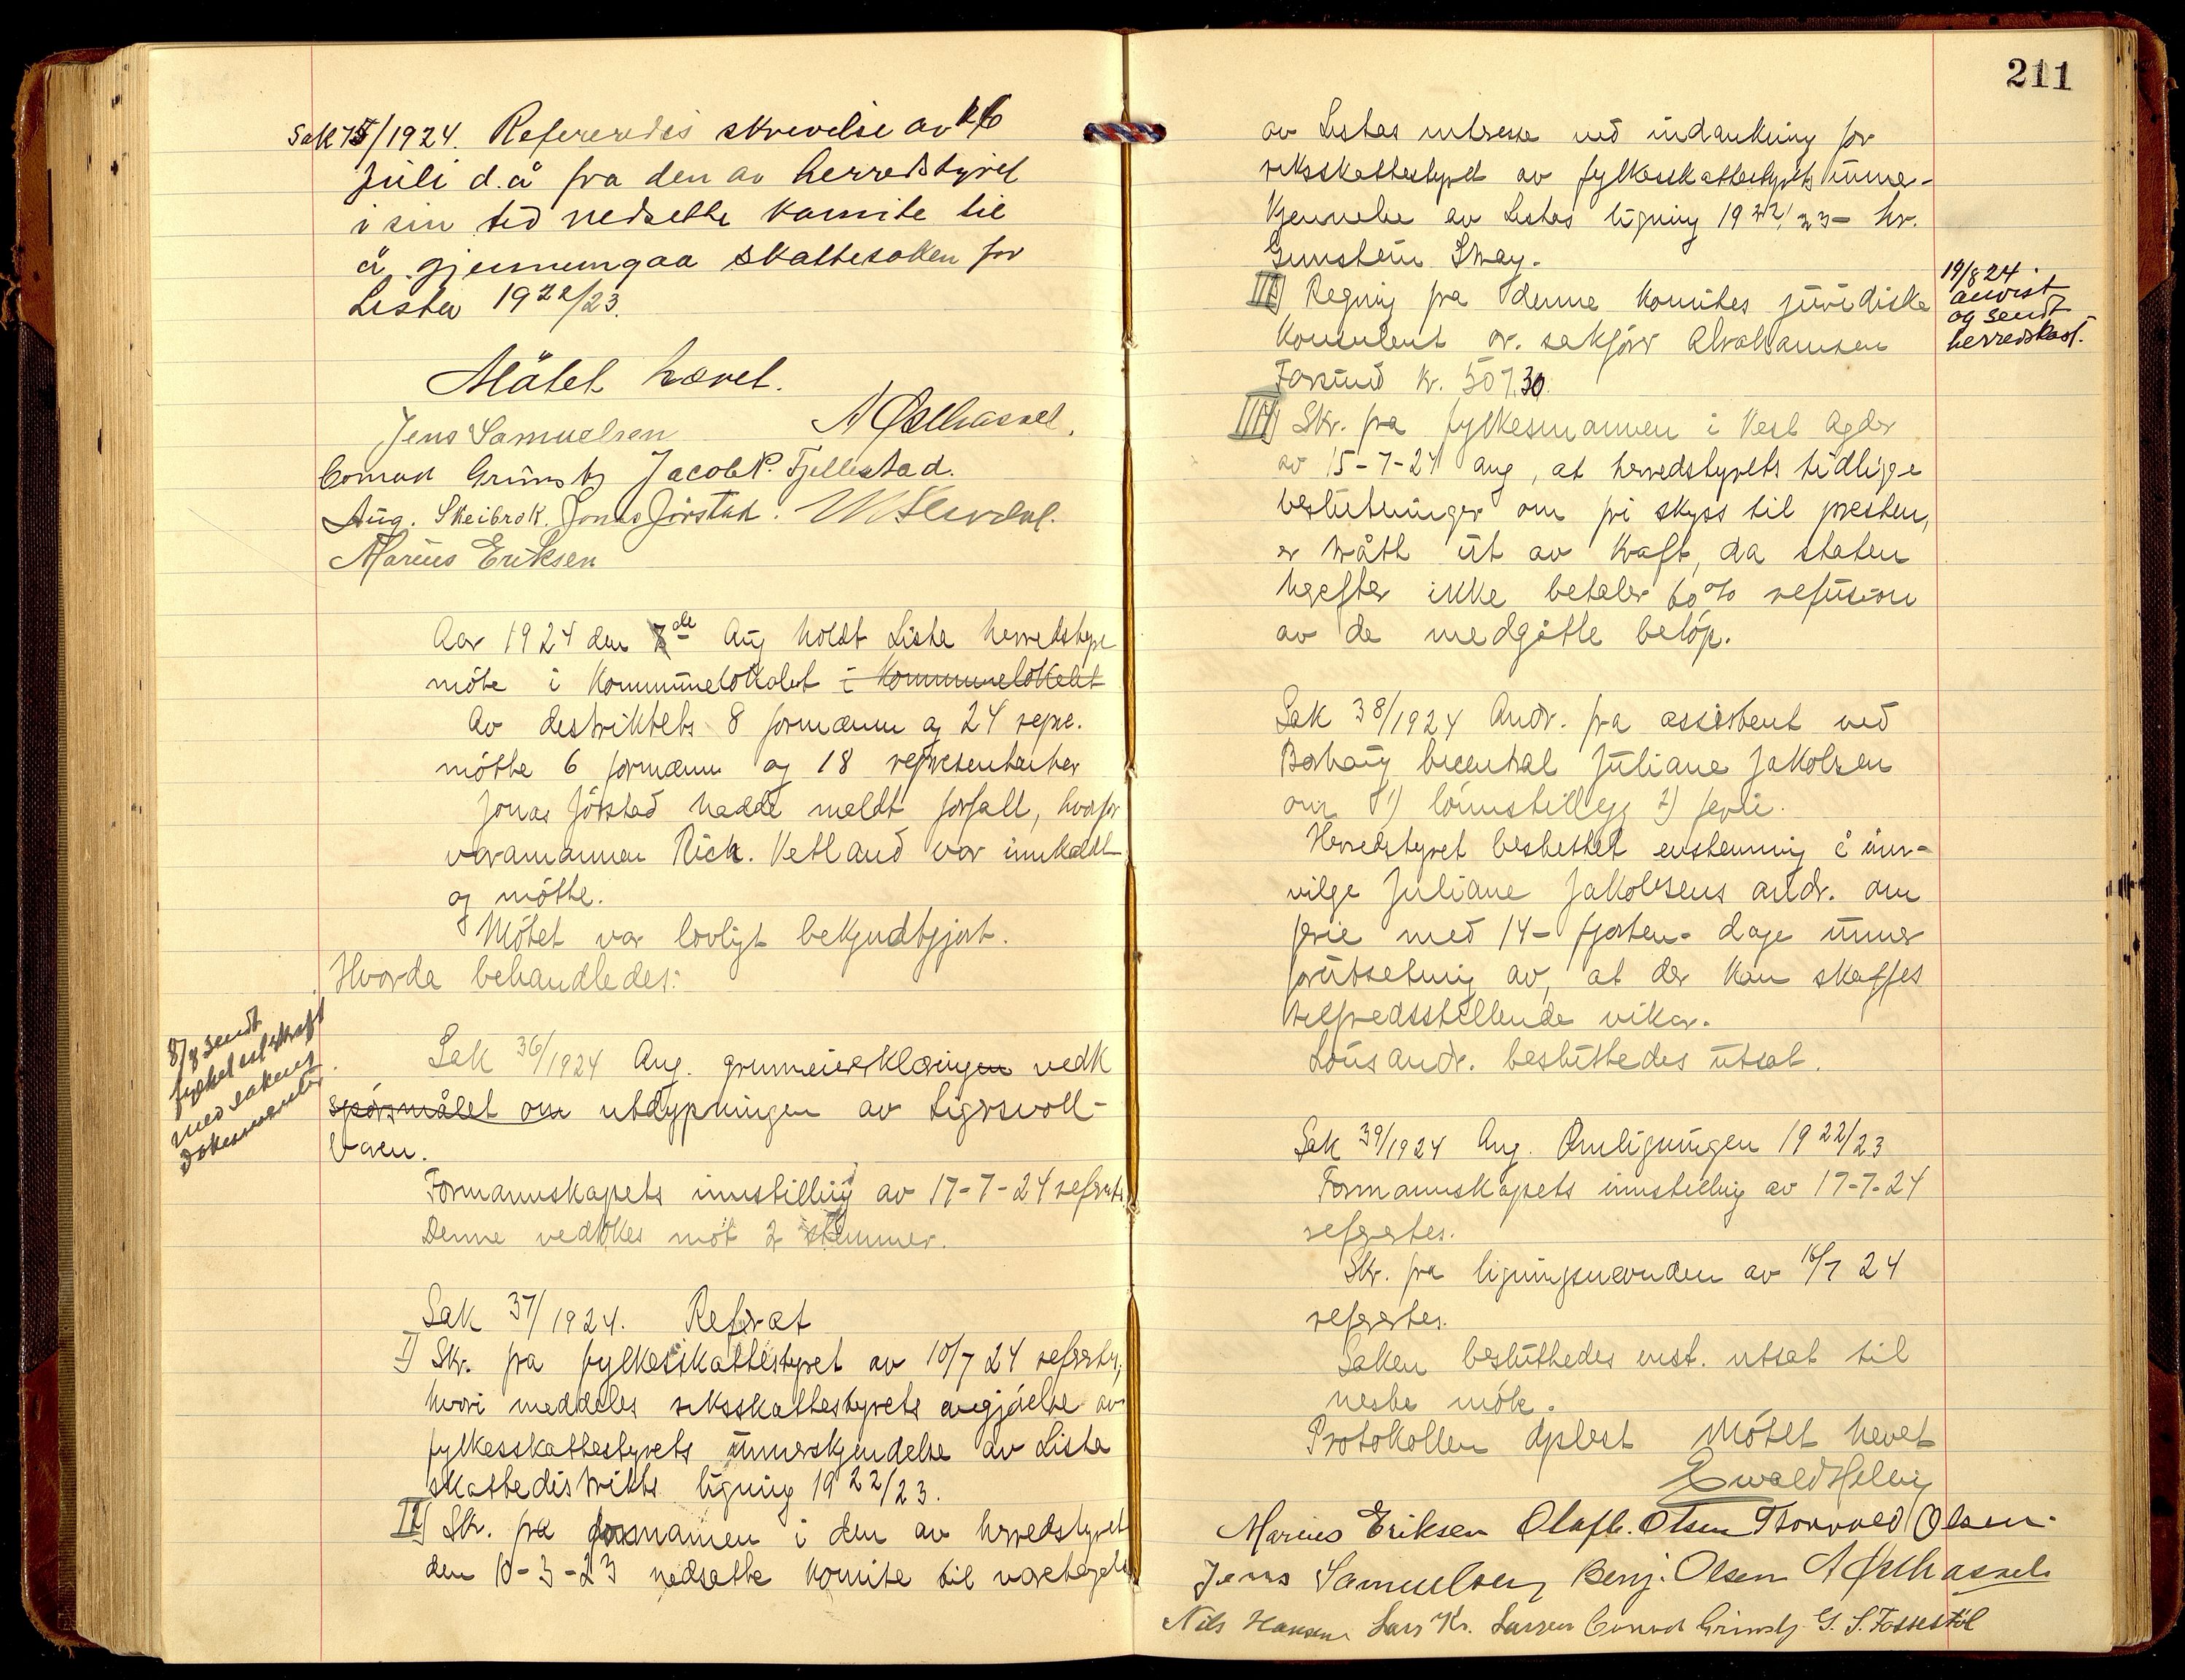 Sak 75/1924. Refereredes skrivelse av
juli d.å fra den av herredstyret
i sin tid nedsatte komite til
å gjennemgaa skattesaken for
Lista 1922/23.
Mötet hevet.
Jens Samuelsen A Østhassel.
Conrad Grimsby Jacob P. Fjellestad.
Aug. Skeibrok. Jonas Jörstad.
Marius Eriksen
Aar 1924 den 8de Aug holdt Lista herredstyre
möte i Kommunelokalet i Kommunelokalet
Av destriktets 8 formænn og 24 repre.
mötte 6 formænn og 18 representanter
Jonas Jörstad hadde meldt forfall, hvorfor
varamannen Rich. Vetland var innkaldt
og mötte.
Mötet var lovligt bekjendtgjort.
Hvorda behandledes:
8/8 sendt
fylket utskrift
med sakens
dokumenter
Sak 36/1924 Ang. grunneiererklæringen vedk
spörsmålet om utdypningen av Sigersvoll-
vaen.
Formannskapets innstilling av 17-7-24 refertes
Denne vedtokes mót 2 stemmer.
Sak 37/1924. Referat
I) Skr. fra fylkesskattestyret av 10/7 24 refertes,
hvori meddeles riksskattestyrets avgjörelse av
fylkesskattestyrets unnerkjendelse av Lista
skattedistrikts ligning 1922/23.
II) Skr. fra formannen i den av herredstyret
den 10-3-23 nedsatte komite til varetagelse
211
av Listas intresse ved indankning for
riksskattestyret av fylkesskattestyrets unner-
kjennelse av Listas ligning 1922/23 - hr.
Gunstein Skray.
III) Regning fra denne komites juridiske
konsulent or. sakförer Abrahamsen
Farsund kr. 507.30.
19/8 24.
anvist
og sendt
herredskas.
IIII) Skr. fra fylkesmannen i Vest Agder
av 15-7-24 ang, at herredstyrets tidligere
beslutninger om fri skyss til presten,
er trått ut av kraft, da staten
herefter ikke betaler 60% refusion
av de medgåtte belöp.
Sak 38/1924 Andr. fra assistent ved
Borhaug central Juliane Jakobsen
om 1) lönnstillegg 2) ferie.
Herredstyret besluttet enstemmig å inn-
vilge Juliane Jakobsens andr. om
ferie med 14- fjorten- dage unner
forutsetning av, at der kan skaffes
tilfredsstillende vikar.
Löns andr. besluttedes utsat.
Sak 39/1924 Ang. Omligningen 1922/23
Formannskapets innstilling av 17-7-24
refertes.
Skr. fra ligningsnevnden av 16/7 24
refertes.
Saken besluttedes enst. utsat til
neste möte.
Protokollen oplest Mötet hevet
Ewald Helvig
Marius Eriksen Olaf L. Olsen Thorvald Olsen.
Jens Samuelsen Benj. Olsen A Østhassel
Nils Hansen Lars Kr. Larsen Conrad Grimsby G. S. Fossestöl